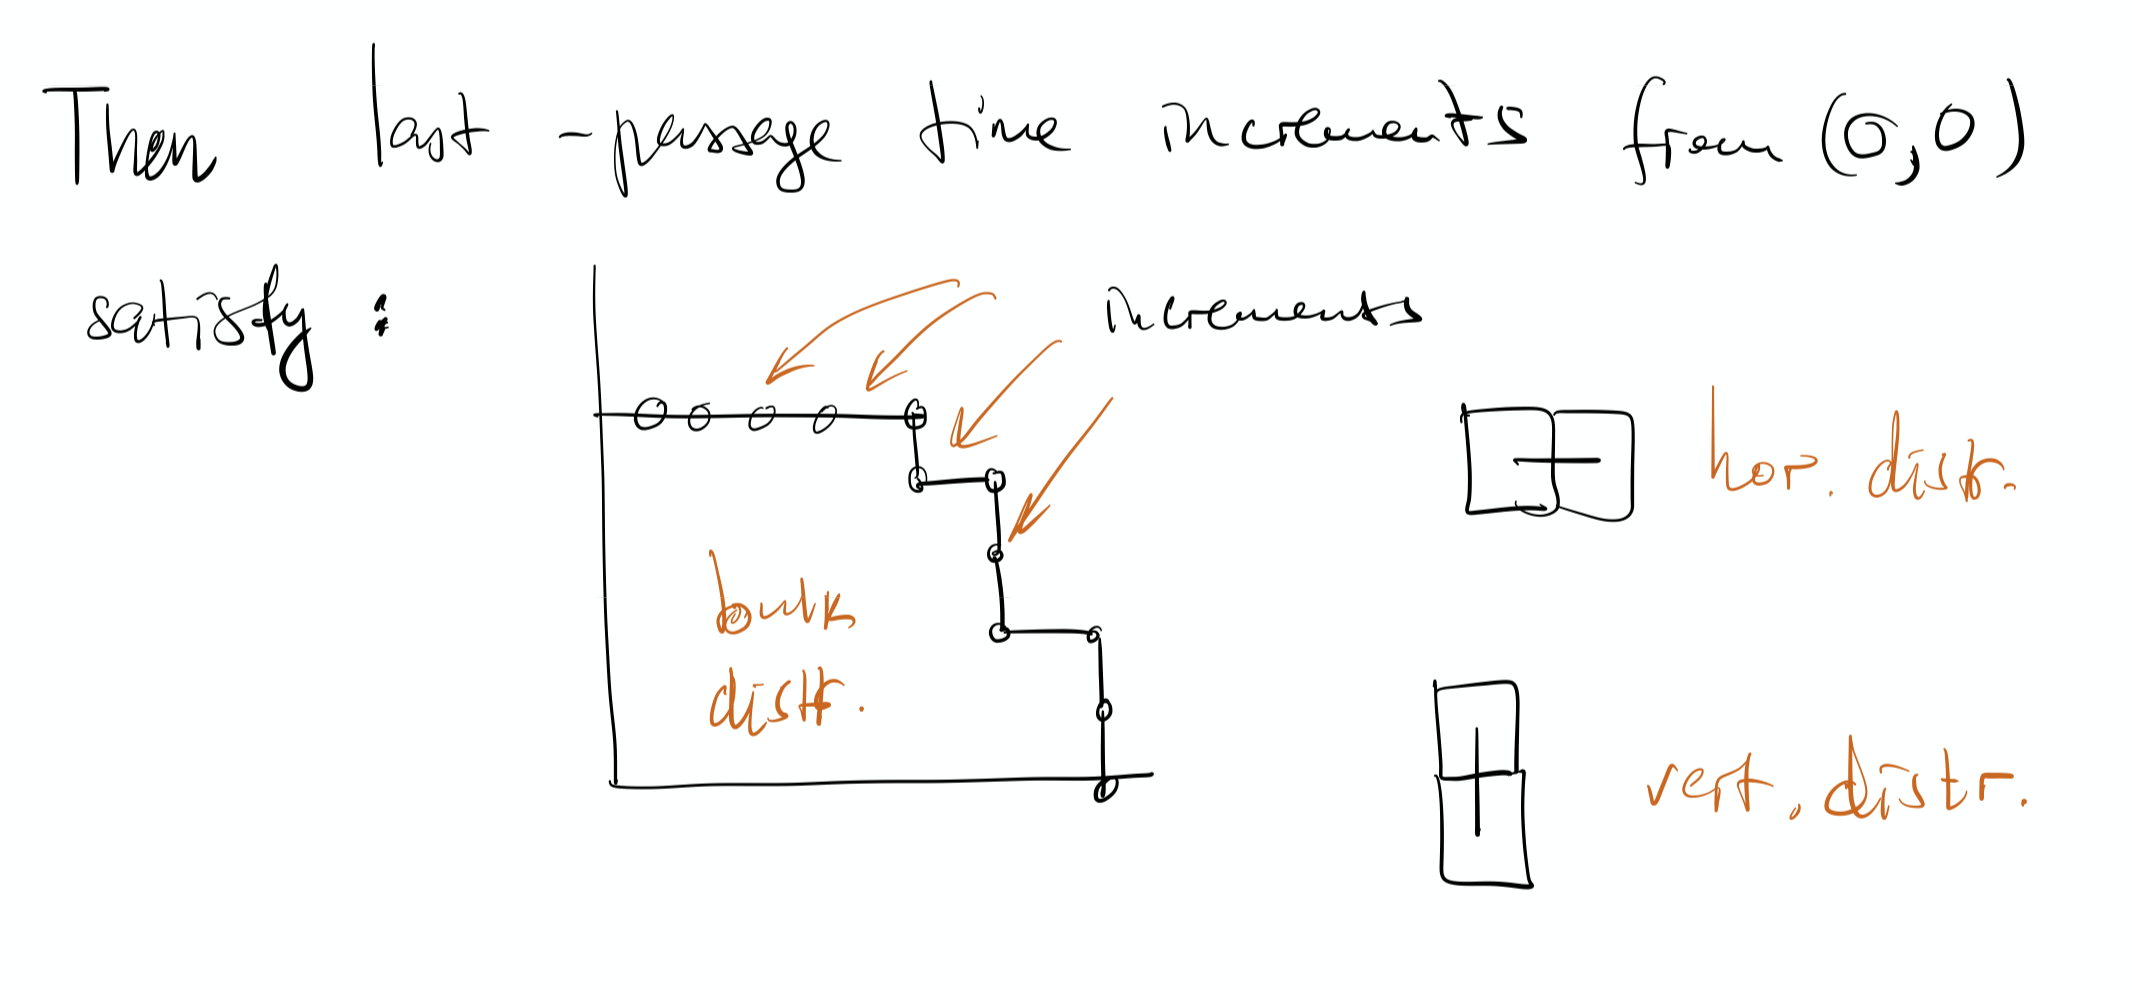 Then last-passage time increments from (0,0)
satisfy :
increments
hor. distr.
bulk
distr.
vert. distr.